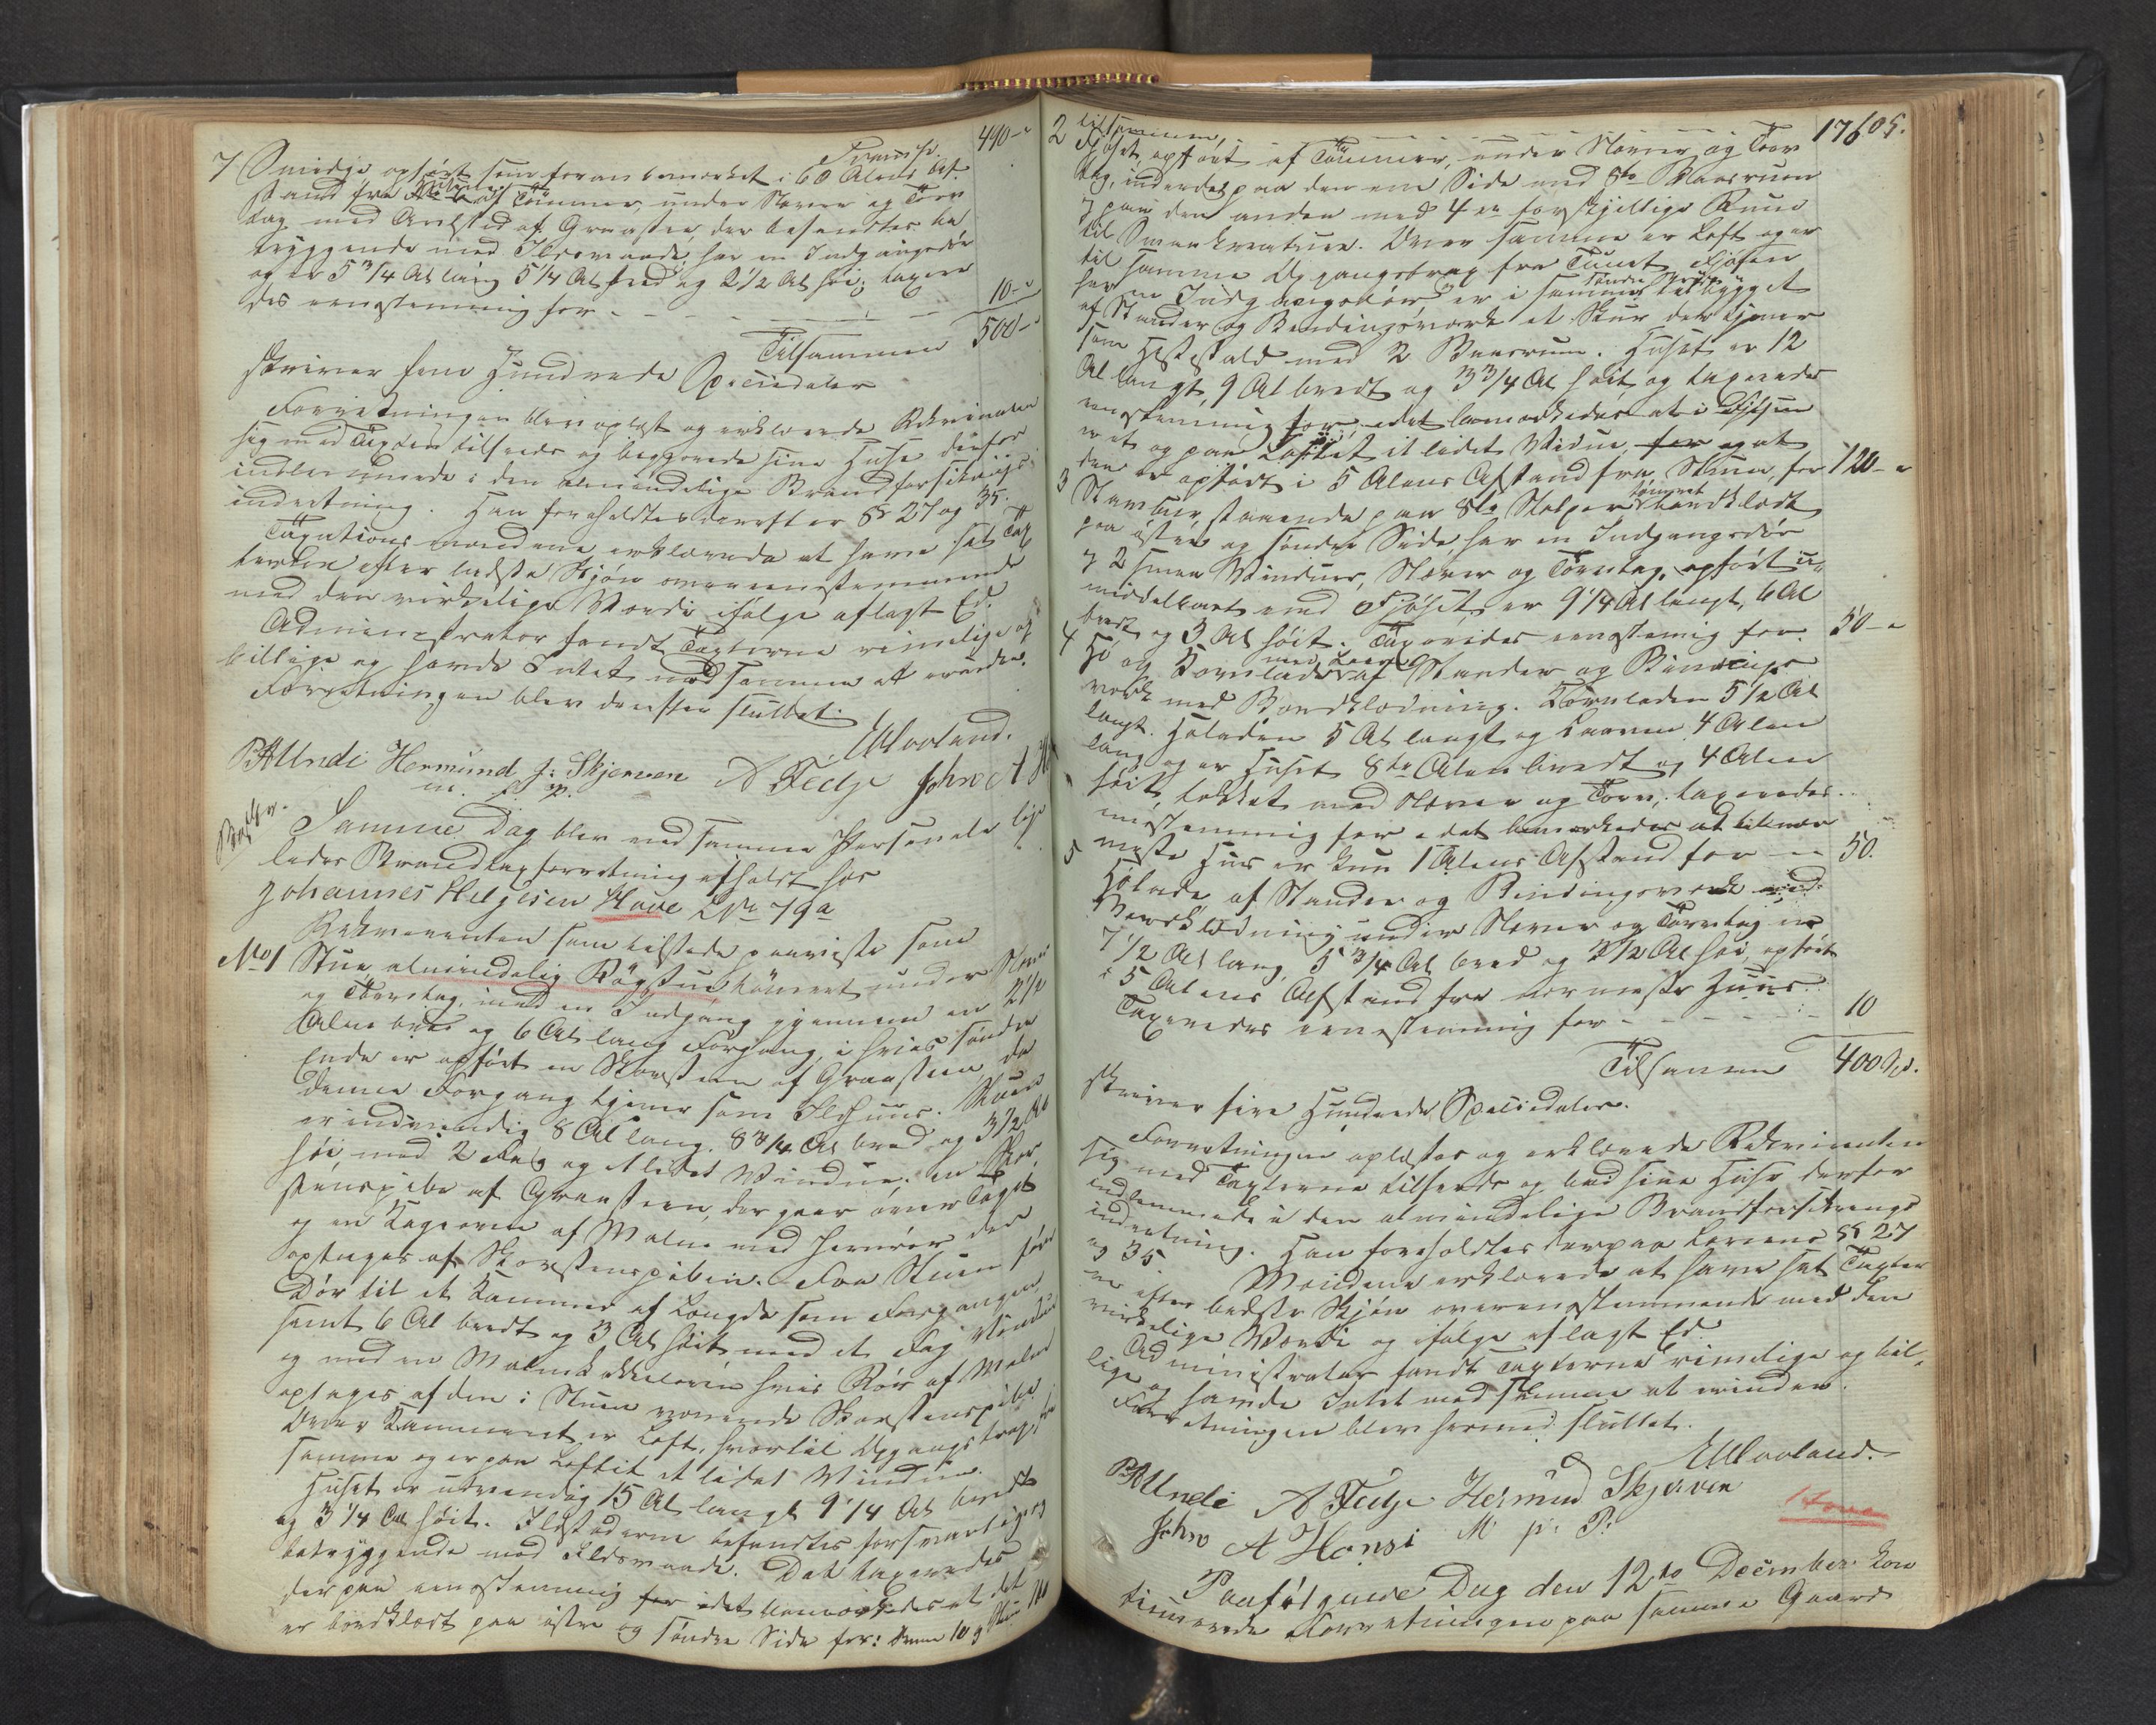 Transp. 490-"
7 Smidje opført som foran bemærket i 60 Alens Af-
stand fra Husene af Tømmer, under Næver og Torv
tag med Avlsted af Graasten, der befandtes be
tryggende mod Ildsvaade, har en Indgangsdør
og er 5 3/4 Al lang 5 1/4 Al bred og 2 1/2 Al høi; taxere
des eenstemmig for - - - - 10-"
Tilsammen 500-"
skriver fem Hundrede Speciedaler
Forretningen blev oplæst og erklærede Rekvirenten
sig med Taxten tilfreds og begjærede sine Huse derfor
indlemmede i den almindelige Brandforsikrings
indretning. Han foreholdtes derefter §§ 27 og 35.
Taxationsmændene erklærede at have sat Tax
terne efter bedste Skjøn overeensstemmende
med den virkelige Værdi ifølge aflagt Ed.
Administrator fandt Taxterne rimelige og
billige og havde Intet mod samme at erindre.
Forretningen blev derefter sluttet.
Waaland.
PAUndi Hermund J: Skjerven A Fedje John A H
m. p. p.
Samme Dag blev med samme Personale lige
ledes Brandtaxforretning afholdt hos
Johannes Helgesen Hove LNr 79a
Rekvirenten som tilstede paaviste som
No 1 Stue, almindelig Røgstue tømret under Næver
og Torvtag, med en Indgang gjennem en 2 1/2
Alen bred og 6 Al lang Forgang, i hvis søndre
Ende er opført en Skorsteen af Graasteen, da
denne Forgang tjener som Ildhuus. Stuen
er indvendig 8 Al lang, 8 3/4 Al bred og 3 1/2 Al
høi, med 2 Fag og 1 lidet Vindue, en Skor
stenspibe af Graasteen, der gaar over Taget
og en Kageovn af Malm med Jernrør der
optages af Skorstenspiben. Fra Stuen fører
Dør til et Kammer af Længde som Forgangen
samt 6 Al bredt og 3 Al høit med et Fag Vindue
og med en Malmkakkelovn hvis Rør af Malm
optages af den i Stuen værende Skorstenspibe
Over Kammeret er Loft, hvortil Opgangstrap fra
samme og er paa Loftet et lidet Vindue.
Huset er udvendig 15 Al langt 9 1/4 Al bredt
og 3 1/4 Al høit. Ildstederne befandtes forsvarlige og
betryggende mod Ildsvaade. Det taxeredes
derpaa eenstemmig for idet bemærkedes at det
er bordklædt paa østre og søndre Side for:
2 tilsammen, - - - - - 17605.
Fjøset, opført af Tømmer, under Næver og Torv
tag, inddeelt paa den ene Side med 8te Baasrum
og paa den anden med 4 er forskjellige Rum
til Smaakreature. Over samme er Loft og er
til samme Opgangstrap fra Tunet. Fjøsen
har en Indgangsdør og er i sammes søndre Gavl tilbygget
af Stænder og Bindingsværk et Skur der tjener
som Hestestald med 2 Baasrum. Huset er 12
Al langt, 9 Al bredt og 3 3/4 Al høit og taxeredes
eenstemmig for, idet bemærkedes at i Fjøsen
er et og paa Loftet et lidet Vindue, for og at
den er opført i 5 Alens Afstand fra Stuen, for 120-"
3 Stavbur, staaende paa 8te Stolper tømret bordklædt
paa østre og søndre Side, har en Indgangsdør
og 2 smaa Vinduer, Næver og Torvtag, opført u-
middelbart ved Fjøset, er 9 1/4 Al langt, 6 Al
bredt og 3 Al høit. Taxeredes eenstemmig for 50-"
4 Hø og Kornlade med Laave af Stænder og Bindings
værk med Bordklædning. Kornladen 5 1/2 Al
langt. Høladen 5 Al langt og Laaven 4 Alen
lang og er Huset 8te Alen bredt og 4 Alen
høit, tækket med Næver og Torv, taxeredes
eenstemmig for idet bemærkedes at til nær
meste Huus er kun 1 Alens Afstand for -- 50.
5 Hølade af Stænder og Bindingsværk med
Bordklædning under Næver og Torvtag er
7 1/2 Al lang, 5 3/4 Al bred og 3 1/2 Al høi, opført
i 5 Alens Afstand fra nærmeste Huus.
Taxeredes eenstemmig for - - - - 10
Tilsammen 400 Spd.
skriver fire Hundrede Speciedaler.
Forretningen oplæstes og erklærede Rekvirenten
sig med Taxterne tilfreds og bad sine Huse derfor
indlemmede i den almindelige Brandforsikrings
indretning. Han foreholdtes derpaa Lovens §§ 27
og 35. Mændene erklærede at have sat Taxter
ne efter bedste Skjøn overensstemmende med den
virkelige Værdi og ifølge aflagt Ed.
Administrator fandt Taxterne rimelige og bil-
lige og havde Intet mod samme at erindre.
Forretningen blev hermed sluttet.
Waaland.
PAUndi A Fedje Hermund Skjerven
John A Hønsi M p: P:
Hove
Paafølgende Dag den 12te December kon
tinuerede Forretningen paa samme Gaard